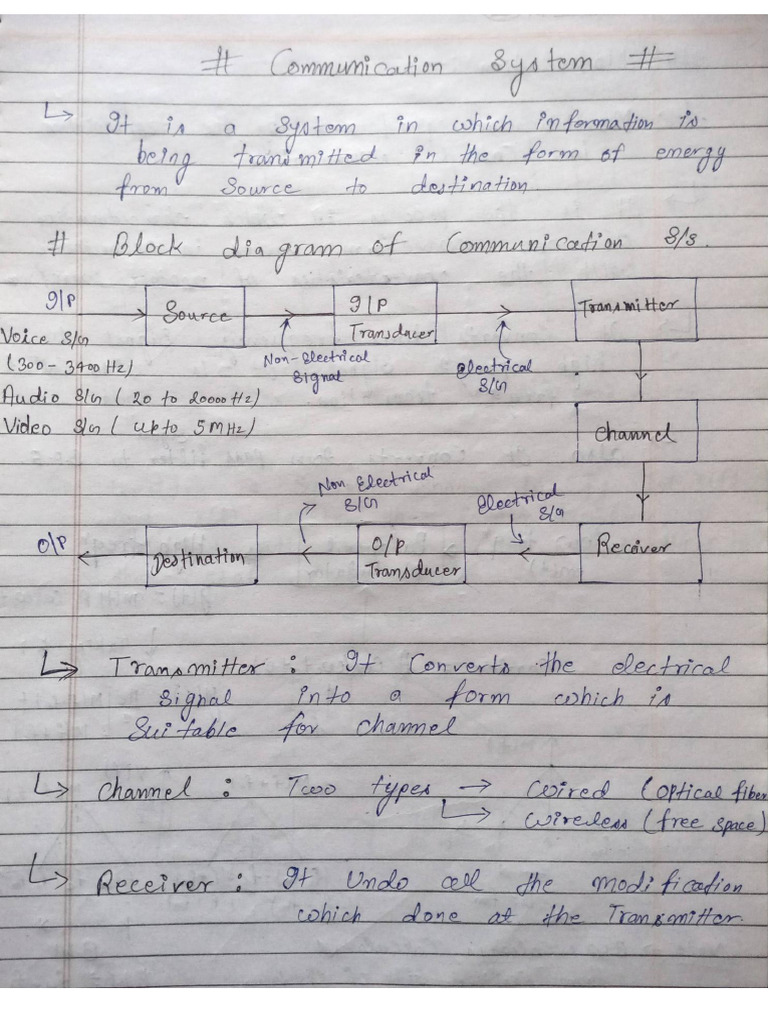 # Communication System #
↳ It is a system in which information is
being transmitted in the form of energy
from Source to destination
# Block diagram of Communication S/s.
I/P
Source
I/P
Transducer
Transmitter
Voice S/G
(300 - 3400 Hz)
Non-electrical
Signal
electrical
S/G
Audio S/G ( 20 to 20000 Hz)
Video S/G ( up to 5 MHz)
Channel
Non Electrical
S/G
Electrical
S/G
O/P
Destination
O/P
Transducer
Reciver
↳ Transmitter : It Converts the electrical
Signal into a form which is
Suitable for channel
↳ Channel : Two types → wired (optical fiber
↳ wireless (free space)
↳ Receiver : It Undo all the modification
which done at the Transmitter.